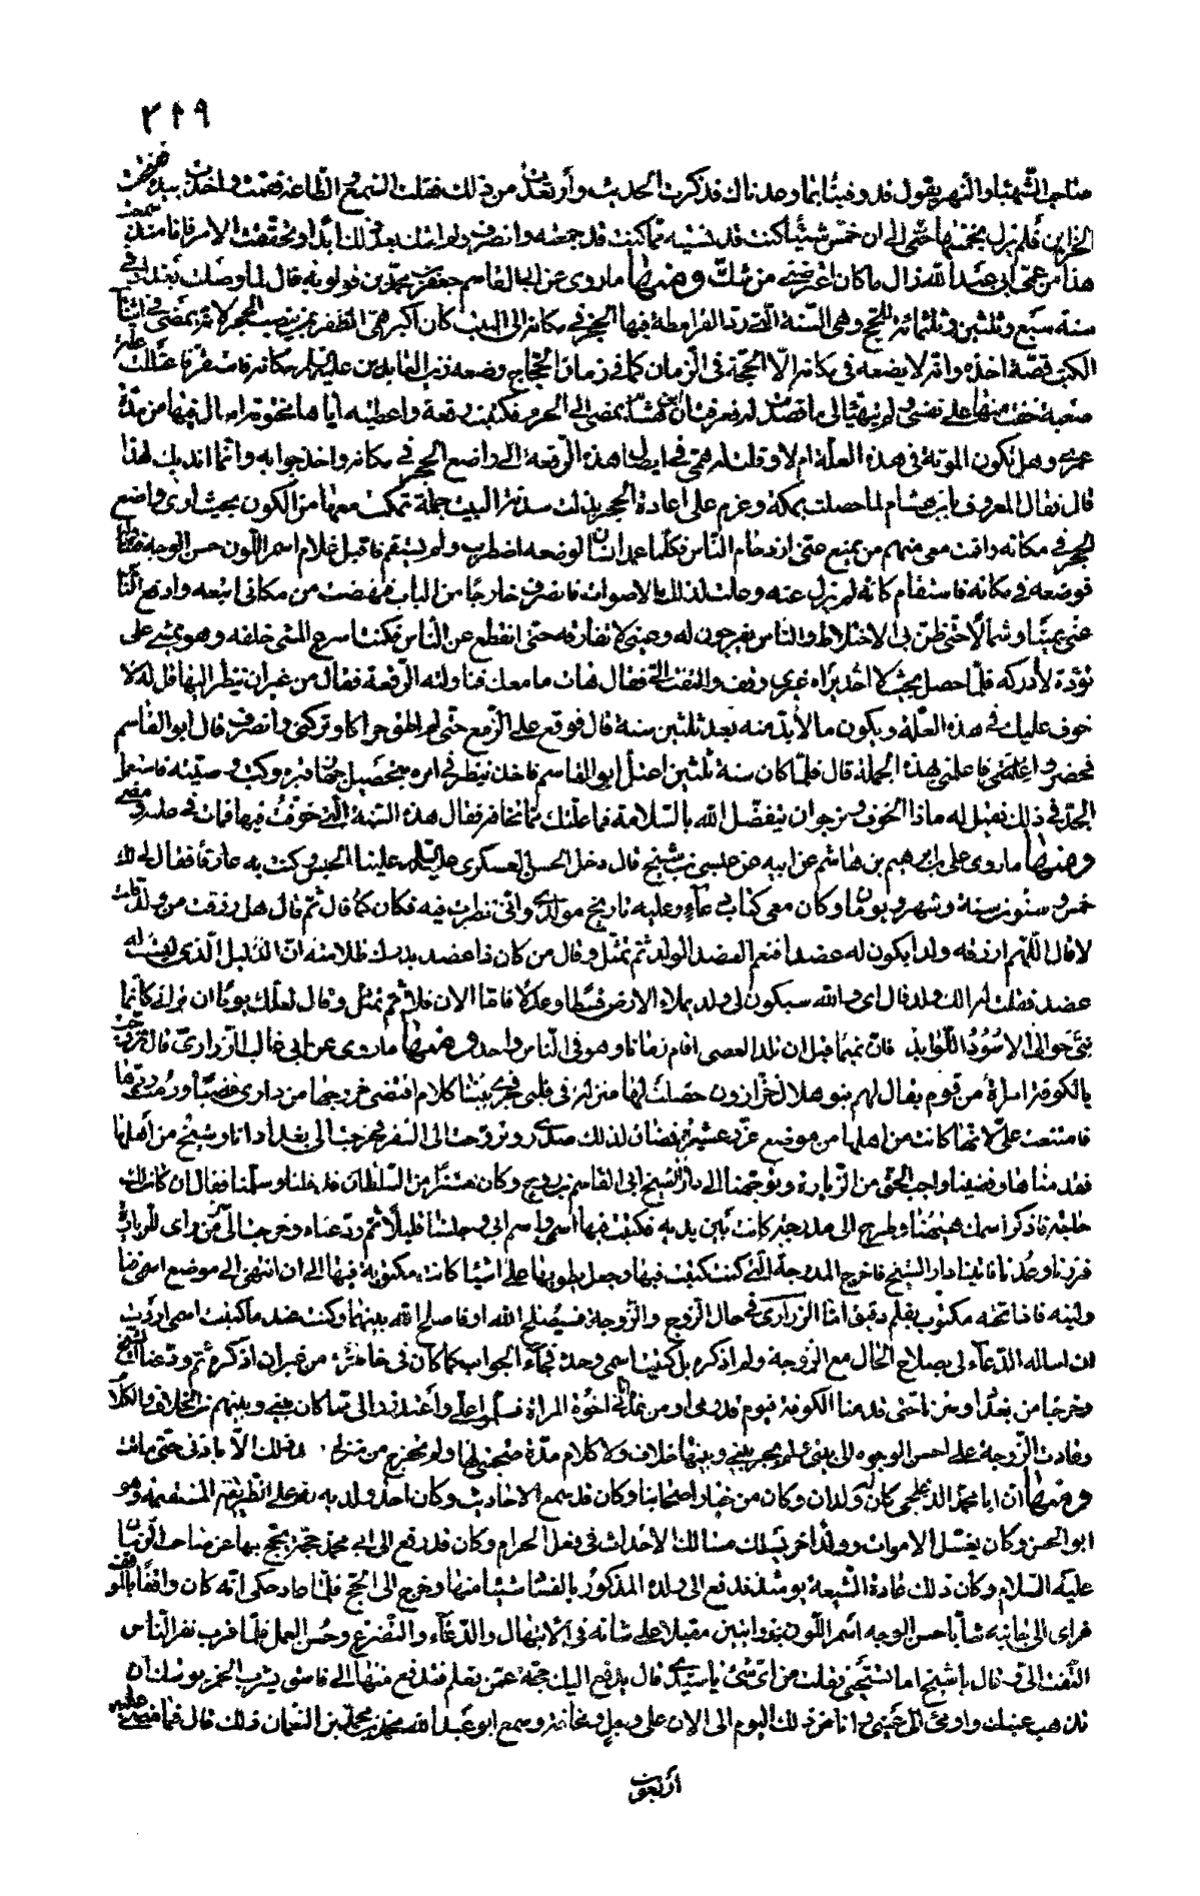 ٣١٩
صاحب الشهباء والنهر يقول قد وفينا بما وعدناك فذكرت الحديث وارتعدت من ذلك فقلت السمع والطاعة فقمت واخذت بيده ففتحت
الخزاين فلم يزل يخمسها حتى الى ان خمس شيئا كنت قد نسيته مما كنت قد جمعته وانصرف ولم اشك بعد ذلك ابدا وتحققت الامر فانا منذ سمعت
هذا من عمى ابى عبد الله زال ما كان اعترضنى من شك ومنها ما روى عن ابى القاسم جعفر بن محمد بن قولويه قال لما وصلت بغداد فى
سنة سبع وثلثين وثلثمائة للحج وهى السنة التى رد القرامطة فيها الحجر فى مكانه الى البيت كان اكبر همى الظفر بمن ينصب الحجر لانه يمضى فى اثناء
الكتب قصة اخذه وانه لا يضعه فى مكانه الا الحجة فى الزمان كما فى زمان الحجاج وضعه زين العابدين عليه السلام مكانه فاستقر فاعتللت علة
صعبة خفت منها على نفسى ولم يتهيأ لى ما قصدت له فعرفت ان ابن هشام يمضى الى الحرم فكتبت رقعة واعطيته اياها مختومة اسال فيها من مدة
عمرى وهل تكون الموتة فى هذه العلة ام لا وقلت له همى ايصال هذه الرقعة الى واضع الحجر فى مكانه واخذ جوابه وانما اندبك لهذا
قال فقال المعروف بابن هشام لما حصلت بمكة وعزم على اعادة الحجر بذلت لسدنة البيت جملة تمكنت معها من الكون بحيث ارى واضع
الحجر فى مكانه واقمت معى منهم من يمنع عنى ازدحام الناس فكلما عمد انسان لوضعه اضطرب ولم يستقم فاقبل غلام اسمر اللون حسن الوجه فتناوله
فوضعه فى مكانه فاستقام كانه لم يزل عنه وعلت لذلك الاصوات فانصرف خارجا من الباب فنهضت من مكانى اتبعه وادفع الناس
عنى يمينا وشمالا حتى ظن بى الاختلاط والناس يفرجون له وعينى لا تفارقه حتى انقطع عن الناس فكنت اسرع المشى خلفه وهو يمشى على
تؤدة لا ادركه فلما حصل بحيث لا احد يراه غيرى وقف والتفت الى فقال هات ما معك فناولته الرقعة فقال من غير ان ينظر اليها قل له لا
خوف عليك فى هذه العلة ويكون ما لا بد منه بعد ثلثين سنة قال فوقع على الزمع حتى لم اطق حراكا وتركنى وانصرف قال ابو القاسم
فحضر واعلمنى بهذه الجملة قال فلما كان سنة ثلثين اعتل ابو القاسم فاخذ ينظر فى امره بتحصيل جهازه وقبره وكتب وصيته فاستعمل
الجد فى ذلك فقيل له ما هذا الخوف ونرجو ان يتفضل الله بالسلامة فما علتك مما يخاف فقال هذه السنة التى خوفت فيها فمات فى علته ومضى
ومنها ما روى على بن ابرهيم بن هاشم عن ابيه عن عيسى بن شيخ قال دخل الحسن العسكرى عليه السلام علينا الحبس وكنت به عارفا فقال لى لك
خمس وستون سنة وشهر ويومان وكان معى كتاب دعاء وعليه تاريخ مولدى وانى نظرت فيه فكان كما قال ثم قال هل رزقت من ولد قلت
لا قال اللهم ارزقه ولدا يكون له عضدا فنعم العضد الولد ثم تمثل وقال من كان ذا عضد يدرك ظلامته ان الذليل الذى ليست له
عضد فقلت له الك ولد قال اى والله سيكون لى ولد يملاء الارض قسطا وعدلا فاما الان فلا ثم تمثل وقال لعلك يوما ان ترانى كانما
بنى حوالى الاسود اللوابد فان تميما قبل ان تلد الحصى اقام زمانا وهو فى الناس واحد ومنها ما روى عن ابى غالب الزرارى قال تزوجت
بالكوفة امراة من قوم يقال لهم بنو هلال خزازون حصلت لها منزلة فى قلبى فجرى بيننا كلام اقتضى خروجها من دارى غضبا ورمت ردها
فامتنعت على لانها كانت من اهلها من موضع عز وعشيرة فضاق لذلك صدرى وتروحت الى السفر فخرجت الى بغداد انا وشيخ من اهلها
فقدمناها وقضينا واجب الحق من الزيارة وتوجهنا الى دار الشيخ ابى القاسم بن روح وكان مستترا من السلطان فدخلنا وسلمنا فقال ان كان لك
حاجة فاذكر اسمك هيهنا وطرح الى مدرجة كانت بين يديه فكتبت فيها اسمى واسم ابى وجلسنا قليلا ثم ودعناه وخرجت الى سر من راى للزيارة
فزرنا وعدنا فاتينا دار الشيخ فاخرج المدرجة التى كنت كتبت فيها وجعل يطويها على اشياء كانت مكتوبة فيها الى ان انتهى الى موضع اسمى فناولنيه
فاذا تحته مكتوب بقلم دقيق اما الزرارى فى حال الزوج والزوجة فسيصلح الله او فاصلح الله بينهما وكنت عند ما كتبت اسمى اردت
ان اساله الدعاء لى بصلاح الحال مع الزوجة ولم اذكره بل كتبت اسمى وحده فجاء الجواب كما كان فى خاطرى من غير ان اذكره ثم ودعنا الشيخ
وخرجنا من بغداد حتى قدمنا الكوفة فيوم قدومى او من غده اتانى اخوة المراة فسلموا على واعتذروا الى مما كان بينى وبينهم من الخلاف والكلام
وعادت الزوجة على احسن الوجوه الى بيتى ولم يجر بينى وبينها خلاف ولا كلام مدة صحبتى لها ولم تخرج من منزلى بعد ذلك الا باذنى حتى ماتت
ومنها ان ابا محمد الدعلجى كان له ولدان وكان من خيار اصحابنا وكان قد سمع الاحاديث وكان احد ولديه على الطريقة المستقيمة وهو
ابو الحسن وكان يغسل الاموات وولد اخر يسلك مسالك الاحداث فى فعل الحرام وكان قد دفع الى ابى محمد حجة يحج بها عن صاحب الزمان
عليه السلام وكان ذلك عادة الشيعة يومئذ فدفع الى ولده المذكور بالفساد شيئا منها وخرج الى الحج فلما عاد حكى انه كان واقفا بالموقف
فراى الى جانبه شابا حسن الوجه اسمر اللون بذوابتين مقبلا على شانه فى الابتهال والدعاء والتضرع وحسن العمل فلما قرب نفر الناس
التفت الى وقال يا شيخ اما تستحيى فقلت من اى شئ يا سيدى قال يدفع اليك حجة عمن تعلم فتدفع منها الى فاسق يشرب الخمر يوشك ان
تذهب عينك واومى الى عينى وانا من ذلك اليوم الى الان على وجل ومخافة وسمع ابو عبد الله محمد بن محمد بن النعمان ذلك قال فما مضى عليه
اربعون